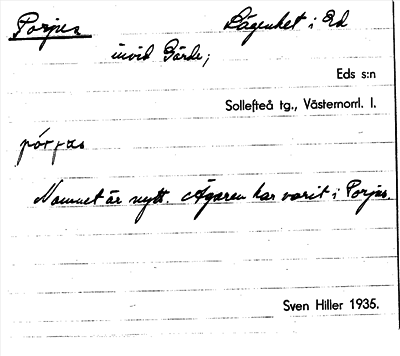 Porjus Lägenhet i Ed
invid Gärde;
Eds s:n
Sollefteå tg., Västernorrl. l.
Namnet är nytt. Ägaren har varit i Porjus.
Sven Hiller 1935.